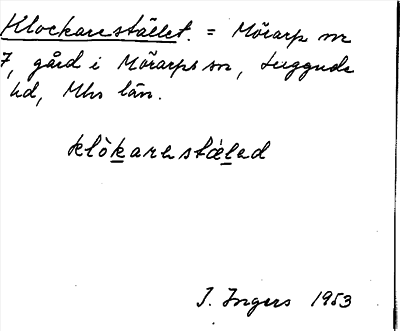 Klockarestället. = Mörarp nr
7, gård i Mörarps sn, Luggude
hd, Mhs län.
klòkarestǽled
I. Ingers 1953